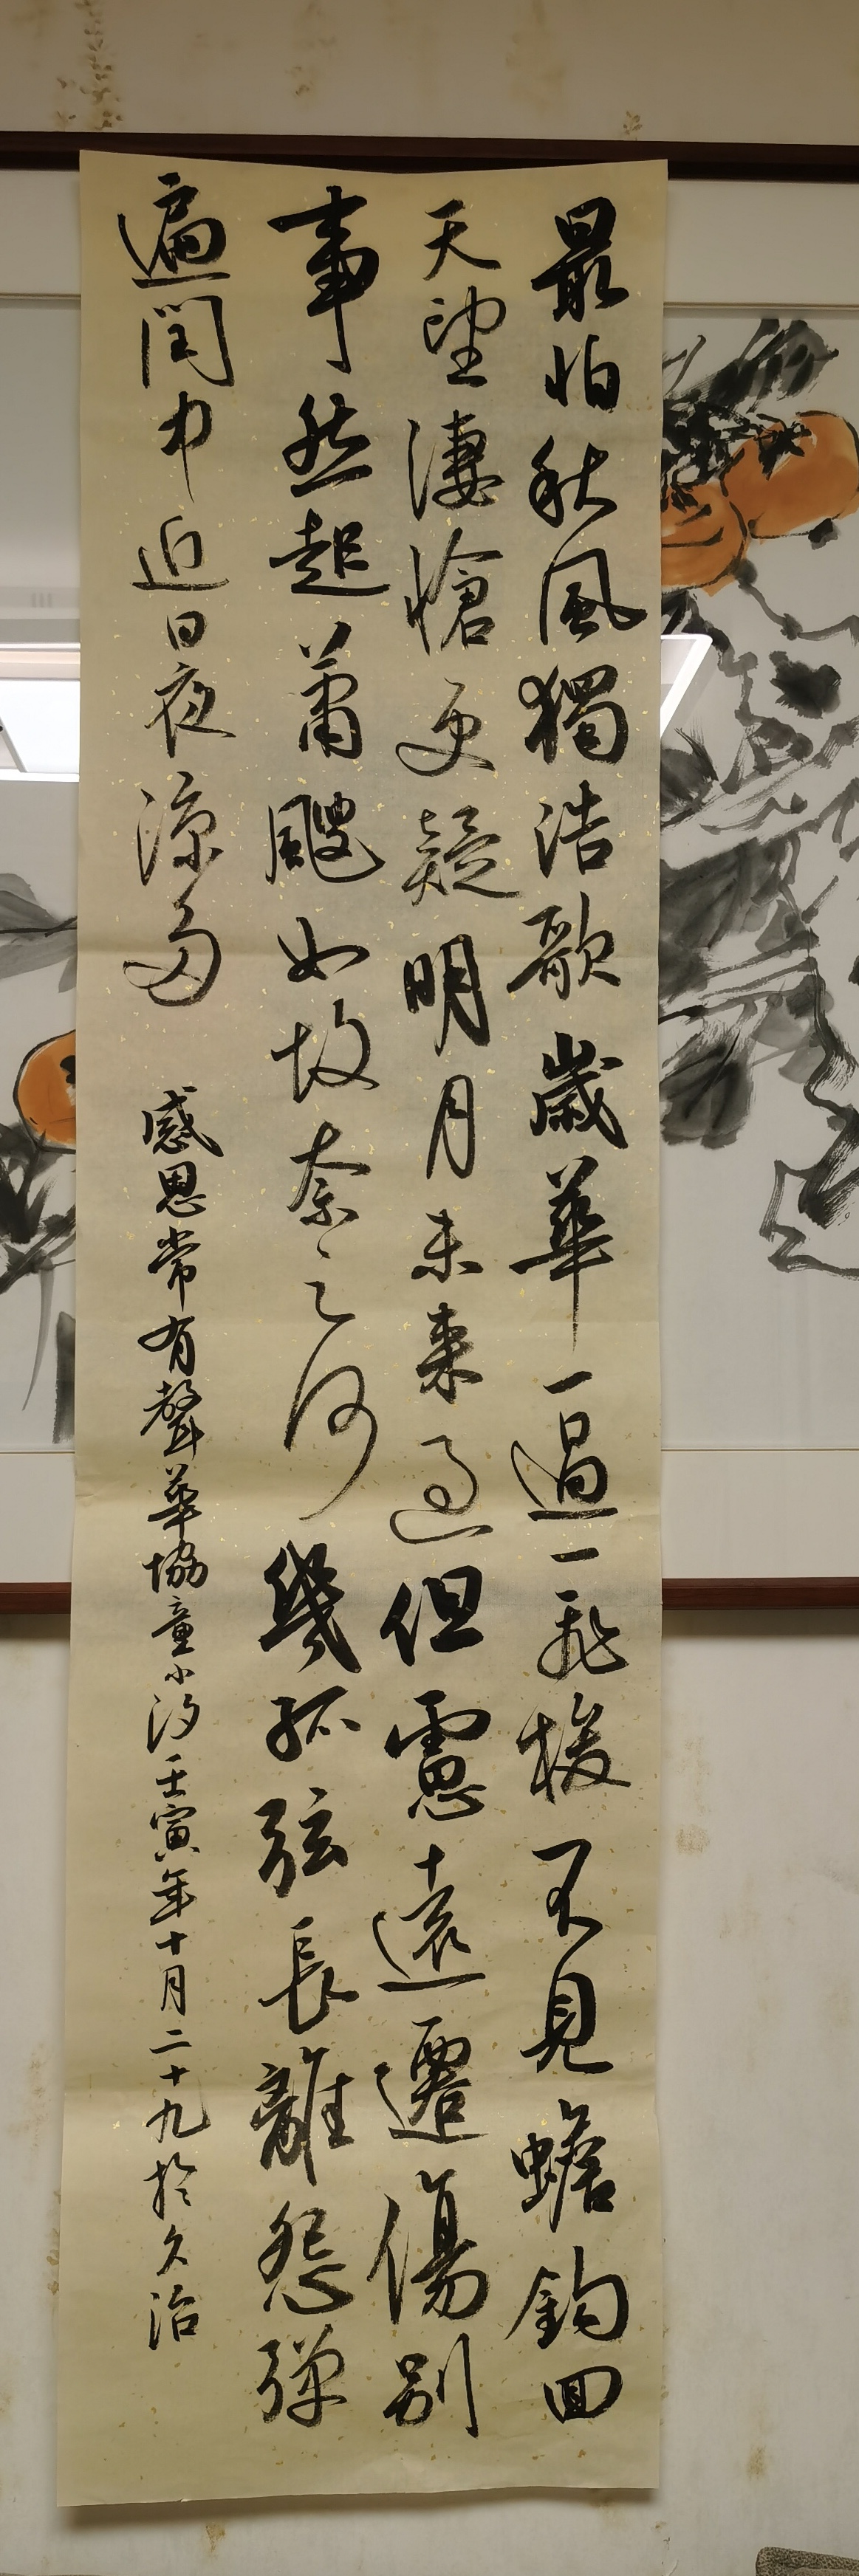 最怕秋風獨浩歌歲華一過一飛梭不見蟾鉤回
天望淒愴更疑明月未來過但慮十遠遷傷別
事愁起蕭颼如故奈之何幾孤弦長離怨彈
遍閏中近日夜涼多
感恩常有聲華協童小汐壬寅年十月二十九於久治